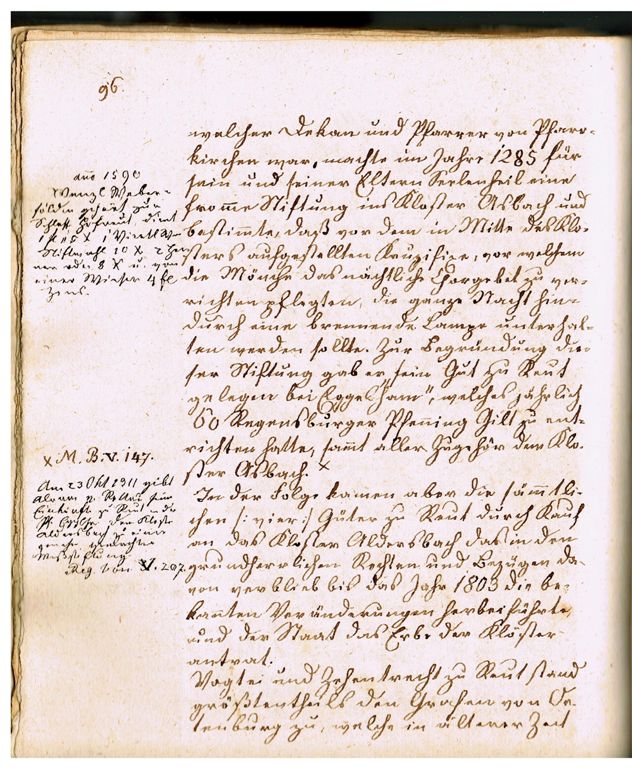 96.
welcher Dekan und Pfarrer von Pfarr-
kirchen war, machte im Jahre 1285 für
sein und seiner Eltern Seelenheil eine
fromme Stiftung ins Kloster Asbach und
bestimmte, daß vor dem in Mitte des Klo-
sters aufgestellten Kruzifixe, vor welchem
die Mönche das nächtliche Chorgebet zu ver-
richten pflegten, die ganze Nacht hin-
durch eine brennende Lampe unterhal-
ten werden sollte. Zur Begründung die-
ser Stiftung gab er sein Gut zu Reut
gelegen bei Eggelham", welches jährlich
60 Regensburger Pfenning Gilt zu ent-
richten hatte, sammt aller Zugehör dem Klo-
ster Asbach. x
In der Folge kamen aber die sämmtli-
chen /: vier :/ Güter zu Reut durch Kauf
an das Kloster Aldersbach das in den
grundherrlichen Rechten und Bezügen da-
von verblieb bis das Jahr 1803 die be-
kannten Veränderungen herbeiführte,
und der Staat das Erbe der Klöster
antrat.
Vogtei und Zehentrecht zu Reut stand
größtentheils den Grafen von Or-
tenburg zu, welche in älterer Zeit
ano 1590
Wenzl Weber
gehört zum
Schloß dient
10 X 2
8 X u. von
einer Wiesen 4 fl
Zins.
x M. B. V. 147.
Am 23 Okt 1911 gibt
Einkünfte zu Reut in der
Pf. dem Kloster
Aldersbach
Reg. boic V. 207.